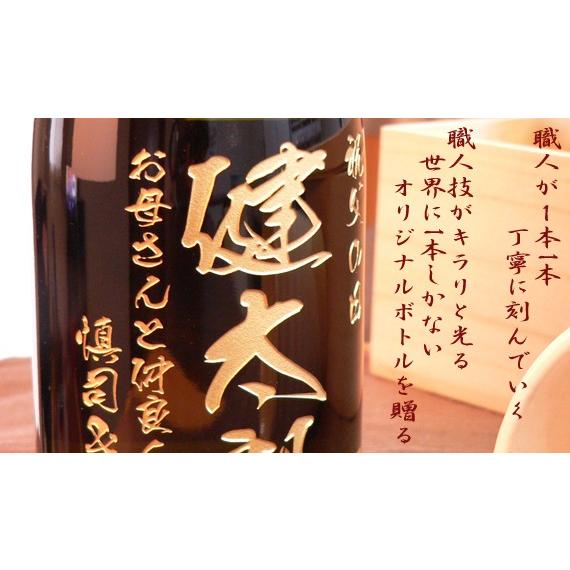 職人が1本一本
丁寧に刻んでいく
職人技がキラリと光る
世界に一本しかない
オリジナルボトルを贈る
健太
お母さんと仲良く
慎司